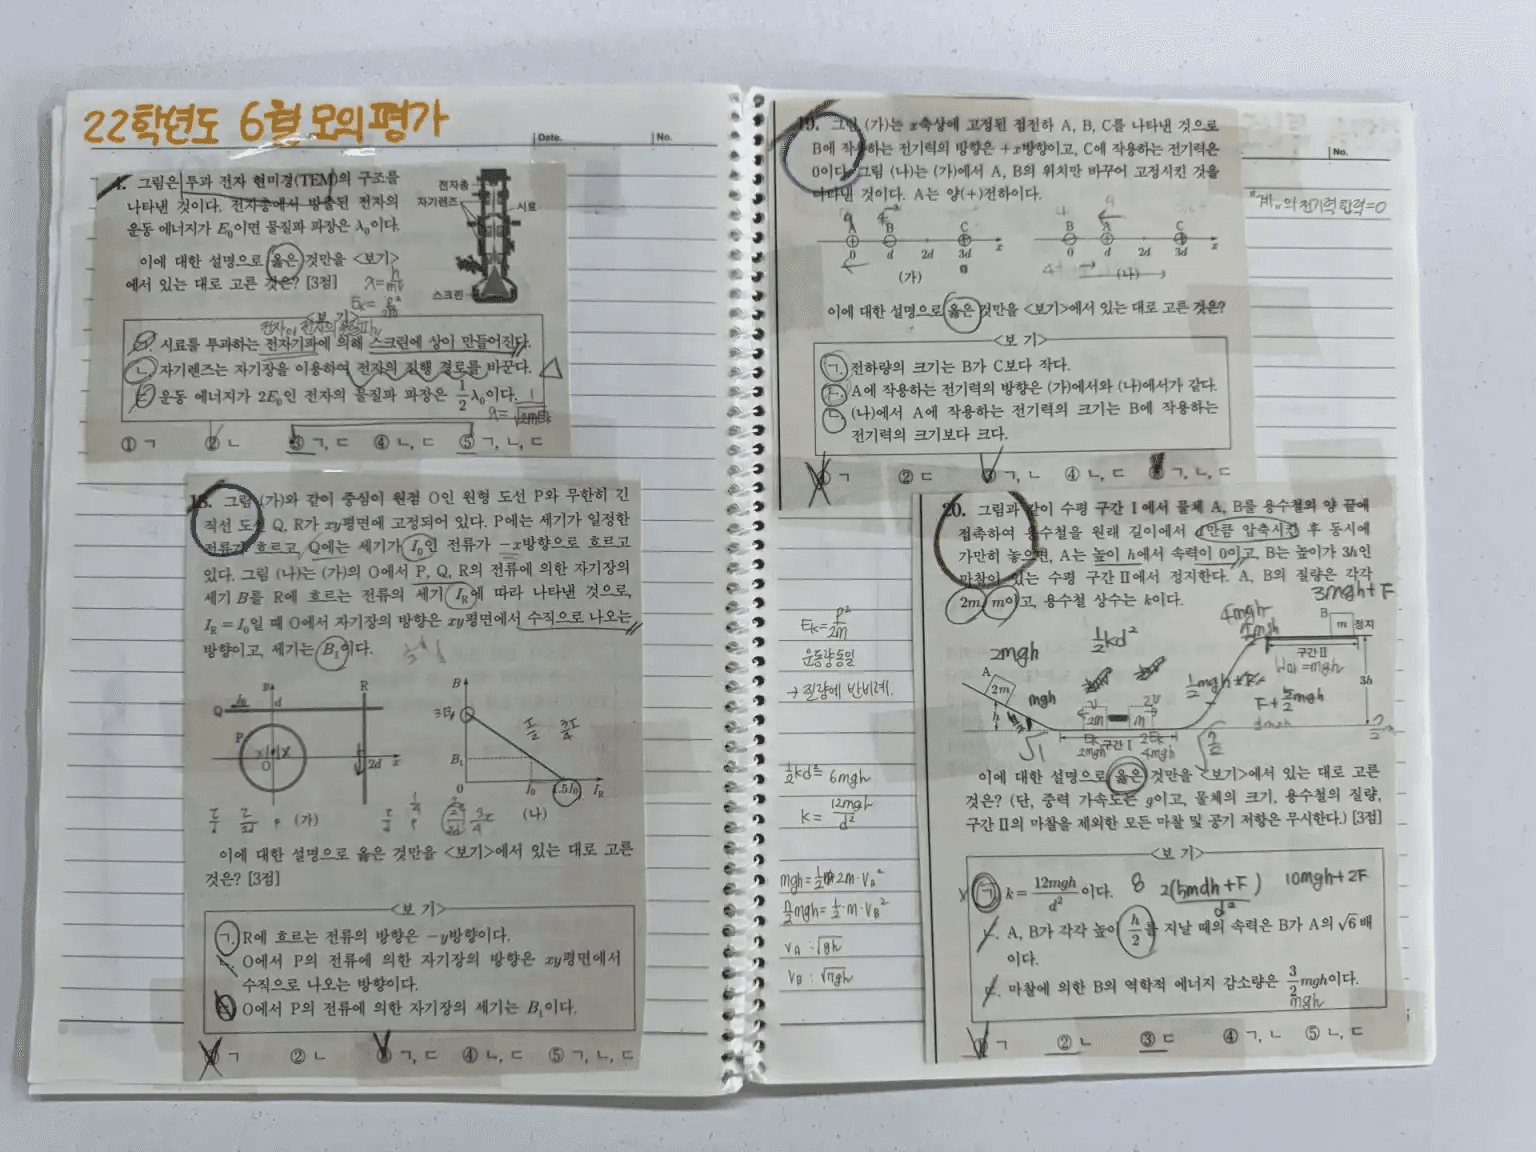 22학년도 6월 모의평가
Date.
No.
4. 그림은 투과 전자 현미경(TEM)의 구조를
나타낸 것이다. 전자총에서 방출된 전자의
운동 에너지가 E₀이면 물질파 파장은 λ₀이다.
이에 대한 설명으로 옳은 것만을 <보기>
에서 있는 대로 고른 것은? [3점]
전자총
자기렌즈
시료
스크린
<보 기>
ㄱ. 시료를 투과하는 전자기파에 의해 스크린에 상이 만들어진다.
ㄴ. 자기렌즈는 자기장을 이용하여 전자의 진행 경로를 바꾼다.
ㄷ. 운동 에너지가 2E₀인 전자의 물질파 파장은 1/2 λ₀이다.
① ㄱ ② ㄴ ③ ㄱ, ㄷ ④ ㄴ, ㄷ ⑤ ㄱ, ㄴ, ㄷ
그림 (가)와 같이 중심이 원점 O인 원형 도선 P와 무한히 긴
직선 도선 Q, R가 xy평면에 고정되어 있다. P에는 세기가 일정한
전류가 흐르고, Q에는 세기가 I₀인 전류가 -x방향으로 흐르고
있다. 그림 (나)는 (가)의 O에서 P, Q, R의 전류에 의한 자기장의
세기 B를 R에 흐르는 전류의 세기 I_R에 따라 나타낸 것으로,
I_R = I₀일 때 O에서 자기장의 방향은 xy평면에서 수직으로 나오는
방향이고, 세기는 B₁이다.
Q
P
O
d
R
2d
x
(가)
B
B₁
0
I₀
1.5I₀
I_R
(나)
이에 대한 설명으로 옳은 것만을 <보기>에서 있는 대로 고른
것은? [3점]
<보 기>
ㄱ. R에 흐르는 전류의 방향은 -y방향이다.
ㄴ. O에서 P의 전류에 의한 자기장의 방향은 xy평면에서
수직으로 나오는 방향이다.
ㄷ. O에서 P의 전류에 의한 자기장의 세기는 B₁이다.
① ㄱ ② ㄴ ③ ㄱ, ㄷ ④ ㄴ, ㄷ ⑤ ㄱ, ㄴ, ㄷ
19. 그림 (가)는 x축상에 고정된 점전하 A, B, C를 나타낸 것으로
B에 작용하는 전기력의 방향은 +x방향이고, C에 작용하는 전기력은
0이다. 그림 (나)는 (가)에서 A, B의 위치만 바꾸어 고정시킨 것을
나타낸 것이다. A는 양(+)전하이다.
No.
"계"의 전기력 합력=0
A B C
0 d 2d 3d x
(가)
B A C
0 d 2d 3d x
(나)
이에 대한 설명으로 옳은 것만을 <보기>에서 있는 대로 고른 것은?
<보 기>
ㄱ. 전하량의 크기는 B가 C보다 작다.
ㄴ. A에 작용하는 전기력의 방향은 (가)에서와 (나)에서가 같다.
ㄷ. (나)에서 A에 작용하는 전기력의 크기는 B에 작용하는
전기력의 크기보다 크다.
① ㄱ ② ㄷ ③ ㄱ, ㄴ ④ ㄴ, ㄷ ⑤ ㄱ, ㄴ, ㄷ
20. 그림과 같이 수평 구간 I에서 물체 A, B를 용수철의 양 끝에
접촉하여 용수철을 원래 길이에서 d만큼 압축시킨 후 동시에
가만히 놓으면, A는 높이 h에서 속력이 0이고, B는 높이가 3h인
마찰이 있는 수평 구간 II에서 정지한다. A, B의 질량은 각각
2m, m이고, 용수철 상수는 k이다.
3mgh+F
4mgh
½kd²
2mgh
mgh
A
2m
h
B
m
정지
구간 II
3h
구간 I
이에 대한 설명으로 옳은 것만을 <보기>에서 있는 대로 고른
것은? (단, 중력 가속도는 g이고, 물체의 크기, 용수철의 질량,
구간 II의 마찰을 제외한 모든 마찰 및 공기 저항은 무시한다.) [3점]
<보 기>
ㄱ. k = 12mgh/d² 이다.
10mgh+2F
ㄴ. A, B가 각각 높이 h/2를 지날 때의 속력은 B가 A의 √6 배
이다.
ㄷ. 마찰에 의한 B의 역학적 에너지 감소량은 3/2 mgh이다.
mgh
① ㄱ ② ㄴ ③ ㄷ ④ ㄱ, ㄴ ⑤ ㄴ, ㄷ
E_K = P²/2m
운동량 동일
→ 질량에 반비례.
½kd² = 6mgh
k = 12mgh/d²
mgh = ½·2m·V_A²
V_A : √gh
V_B : √7gh